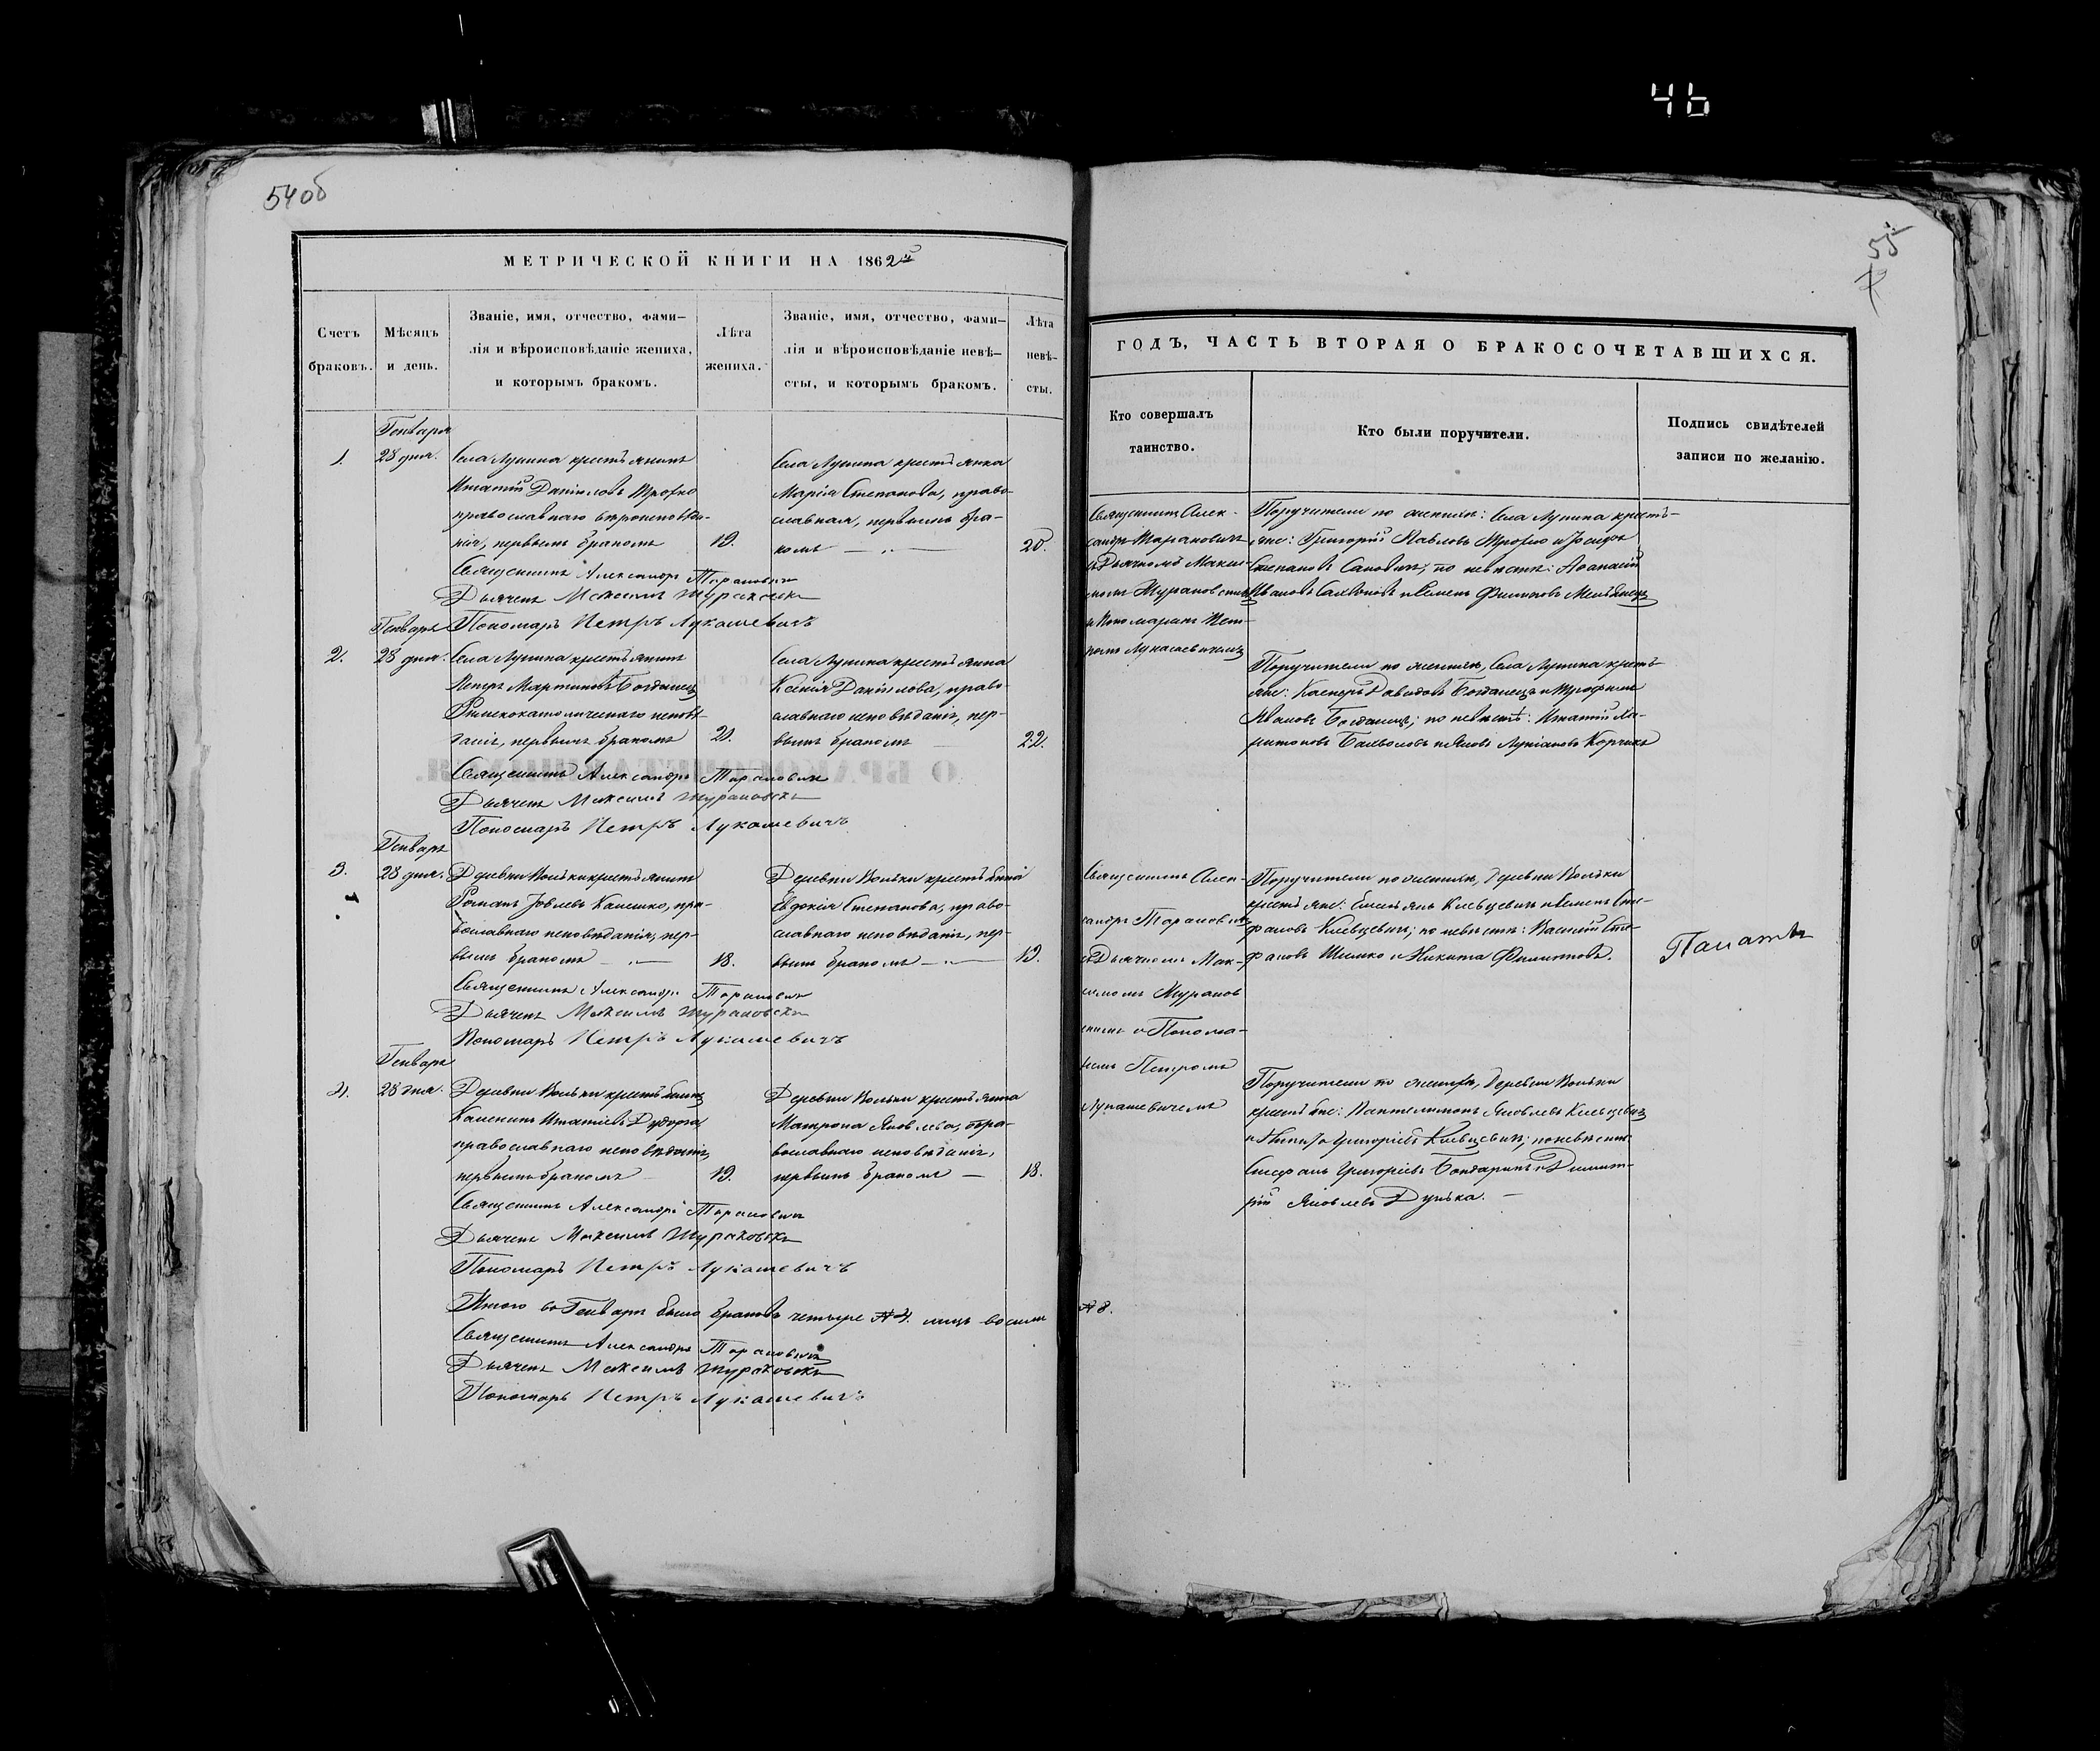 46
54об
55
МЕТРИЧЕСКОЙ КНИГИ НА 1862й
Счетъ
браковъ.
Мѣсяцъ
и день.
Званіе, имя, отчество, фами-
лія и вѣроисповѣданіе жениха,
и которымъ бракомъ.
Лѣта
жениха.
Званіе, имя, отчество, фами-
лія и вѣроисповѣданіе невѣ-
сты, и которымъ бракомъ.
Лѣта
невѣ-
сты.
Генваря
1. 28 дня.
Села Лунина крестьянинъ
Игнатій Даніиловъ Трофко
православнаго вѣроисповѣда-
нія, первымъ бракомъ
19.
Села Лунина крестьянка
Марія Степанова, право-
славная, первымъ бра-
комъ
20.
Священникъ Александръ Тарановичъ
Дьячекъ Максимъ Жураковскі
Пономарь Петръ Лукашевичъ
Генваря
2. 28 дня.
Села Лунина крестьянинъ
Петръ Мартиновъ Богданецъ
Римскокатолическаго исповѣ-
данія, первымъ бракомъ
21.
Села Лунина крестьянка
Ксенія Даніилова, право-
славнаго исповѣданія, пер-
вымъ бракомъ
22.
Священникъ Александръ Тарановичъ
Дьячекъ Максимъ Жураковскі
Пономарь Петръ Лукашевичъ
Генваря
3. 28 дня.
Деревни Вольки крестьянинъ
Романъ Іовлевъ Калешко, пра-
вославнаго исповѣданія, пер-
вымъ бракомъ
18.
Деревни Вольки
Евдокія Степанова, право-
славнаго исповѣданія, пер-
вымъ бракомъ
19.
Священникъ Александръ Тарановичъ
Дьячекъ Максимъ Жураковскі
Пономарь Петръ Лукашевичъ
Генваря
4. 28 дня.
Деревни Вольки
Игнатіевъ
православнаго исповѣданія,
первымъ бракомъ
19.
Деревни Вольки крестьянка
Матрона Яковлева, пра-
вославнаго исповѣданія,
первымъ бракомъ
18.
Священникъ Александръ Тарановичъ
Дьячекъ Максимъ Жураковскі
Пономарь Петръ Лукашевичъ
Итого въ Генварѣ было браковъ четыре № 4. лицъ восемь № 8.
Священникъ Александръ Тарановичъ
Дьячекъ Максимъ Жураковскі
Пономарь Петръ Лукашевичъ
ГОДЪ, ЧАСТЬ ВТОРАЯ О БРАКОСОЧЕТАВШИХСЯ.
Кто совершалъ
таинство.
Кто были поручители.
Подпись свидѣтелей
записи по желанію.
Священникъ Алек-
сандръ Тарановичъ
съ Дьячкомъ Макси-
момъ Жураковскимъ
и Пономаремъ Пет-
ромъ Лукашевичемъ
Поручители по женихѣ: Села Лунина кресть-
яне: Григорій Павловъ Трофко и Іосифъ
Степановъ по невѣстѣ: Аѳанасій
Ивановъ и Семенъ Филиповъ
Поручители по женихѣ, Села Лунина кресть-
яне: Давидовъ Богданецъ и Трофимъ
Ивановъ Богданецъ; по невѣстѣ: Игнатій Ха-
ритоновъ и Яковъ Лукіановъ Корчикъ
Священникъ Алек-
сандръ Тарановичъ
съ Дьячкомъ Мак-
симомъ Жураков
скимъ и Понома-
ремъ Петромъ
Лукашевичемъ
Поручители по женихѣ, Деревни Вольки
крестьяне: Емельянъ Клевцевичъ и Семенъ Сте-
фановъ Клевцевичъ; по невѣстѣ: Василій Сте-
фановъ Шишко и Никита Филиповъ.
Поручители по женихѣ, Деревни Вольки
Пантелимонъ Яковлевъ Клевцевичъ
и Григоріевъ Клевцевичъ; по невѣстѣ
Стефанъ Григоріевъ Бондарикъ и Димит-
рій Яковлевъ Дунька.